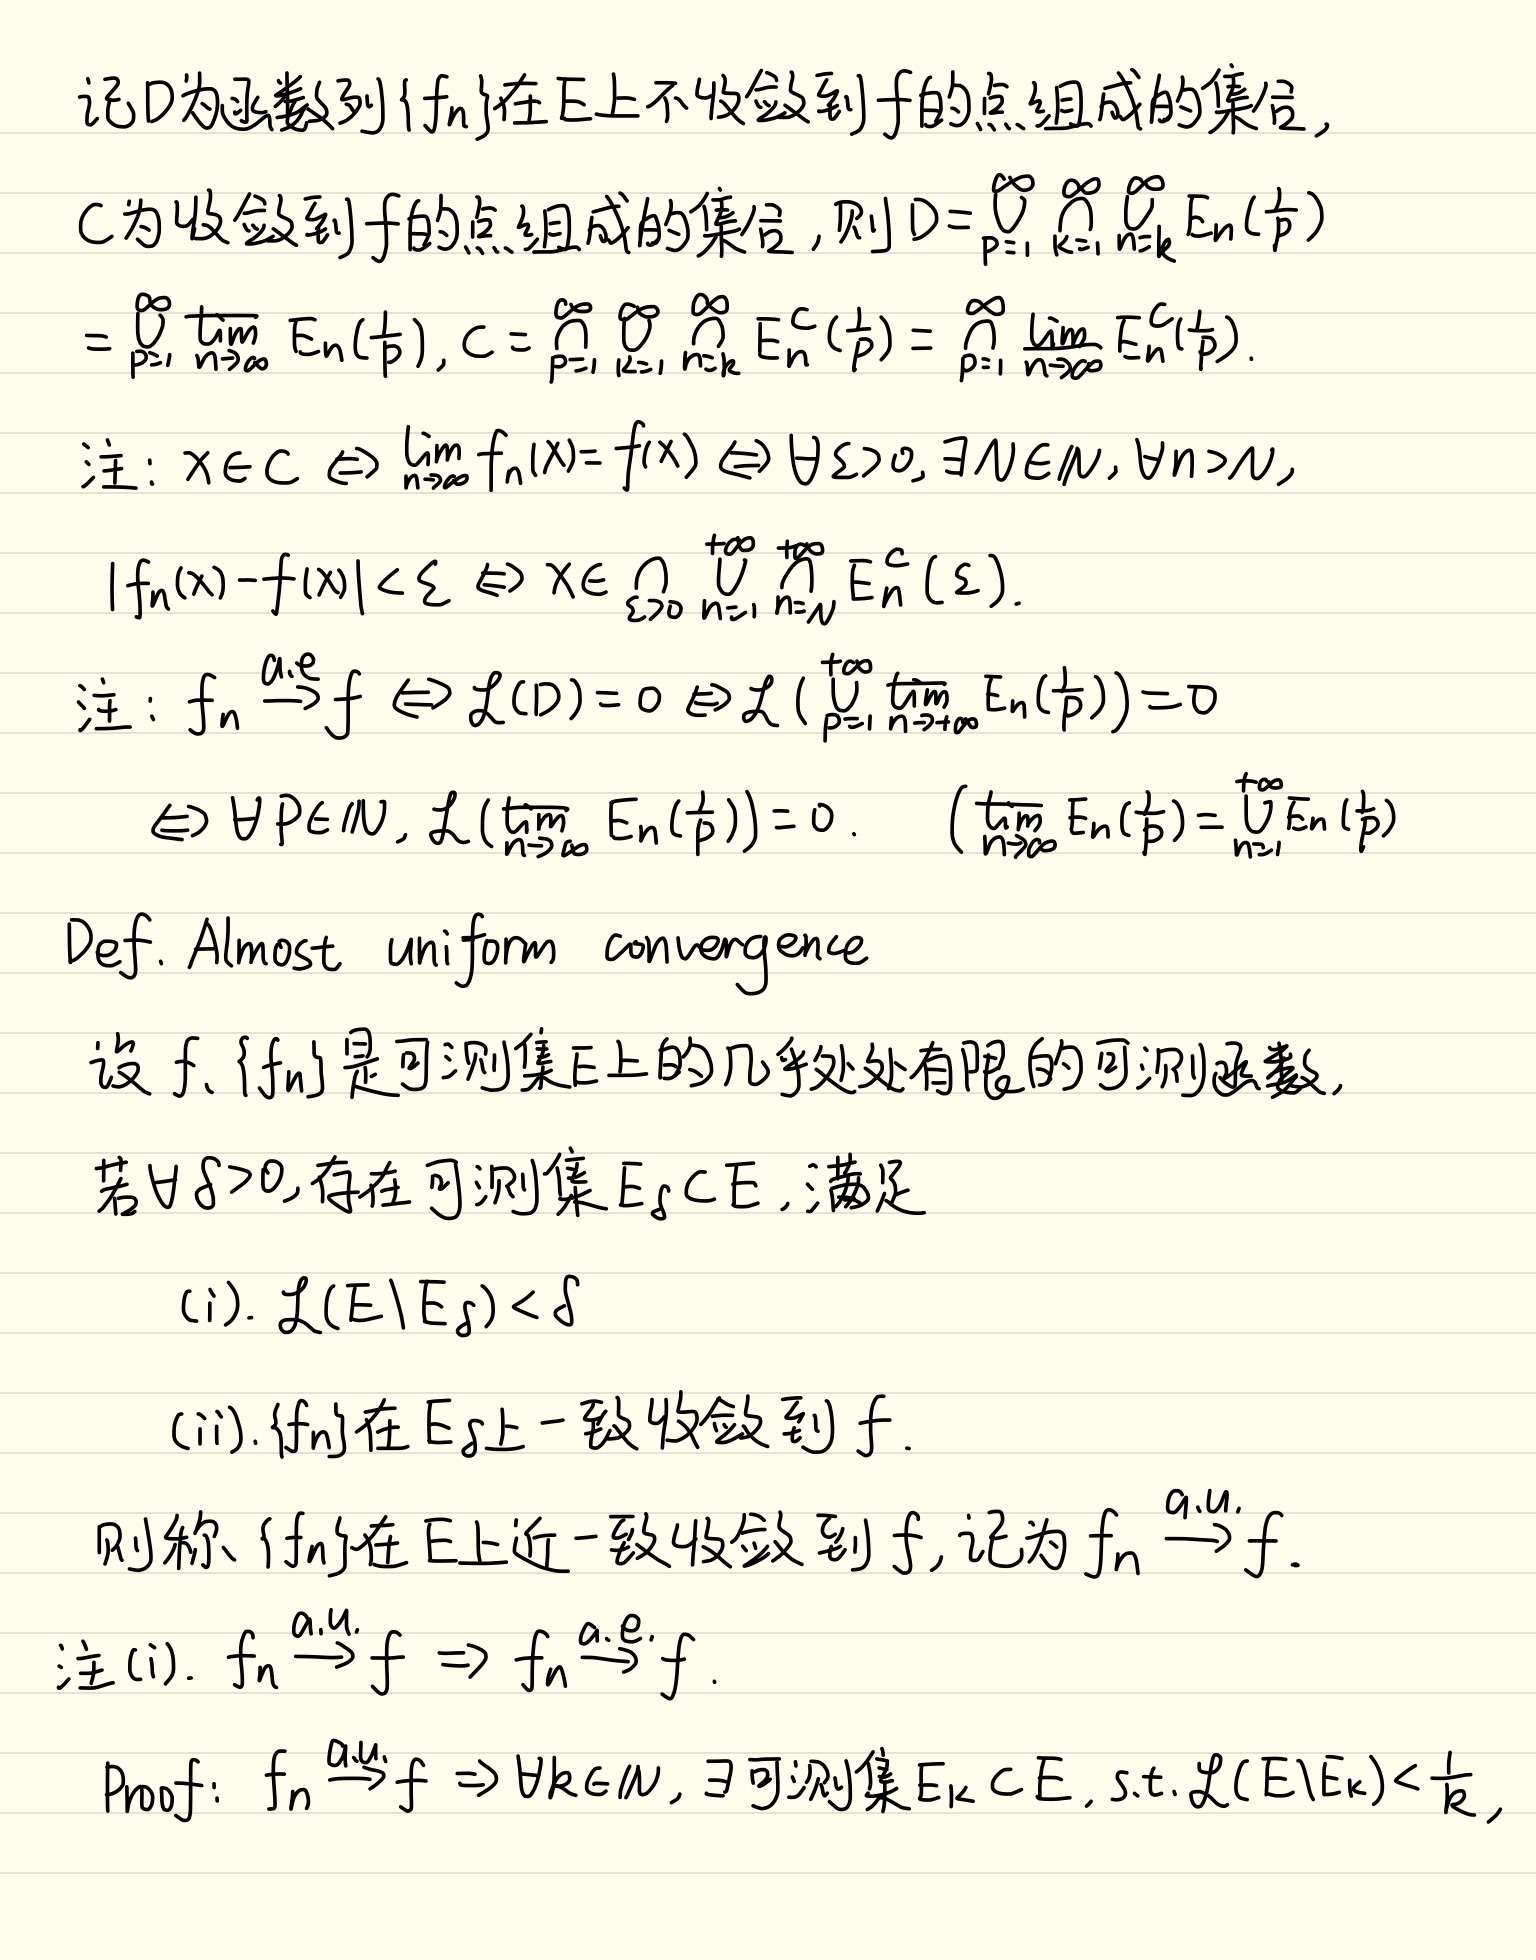 记D为函数列{fn}在E上不收敛到f的点组成的集合,
C为收敛到f的点组成的集合,则 D = ⋃_{p=1}^{∞} ⋂_{k=1}^{∞} ⋃_{n=k}^{∞} En(1/p)
= ⋃_{p=1}^{∞} \overline{lim}_{n→∞} En(1/p), C = ⋂_{p=1}^{∞} ⋃_{k=1}^{∞} ⋂_{n=k}^{∞} En^c(1/p) = ⋂_{p=1}^{∞} \underline{lim}_{n→∞} En^c(1/p).
注: x∈C ⇔ lim_{n→∞} fn(x) = f(x) ⇔ ∀ε>0, ∃N∈ℕ, ∀n>N,
|fn(x) - f(x)| < ε ⇔ x ∈ ⋂_{ε>0} ⋃_{n=1}^{+∞} ⋂_{n=N}^{+∞} En^c(ε).
注: fn \xrightarrow{a.e} f ⇔ ℒ(D) = 0 ⇔ ℒ(⋃_{p=1}^{+∞} \overline{lim}_{n→+∞} En(1/p)) = 0
⇔ ∀P∈ℕ, ℒ(\overline{lim}_{n→∞} En(1/p)) = 0. (\overline{lim}_{n→∞} En(1/p) = ⋃_{n=1}^{+∞} En(1/p)
Def. Almost uniform convergence
设 f、{fn}是可测集E上的几乎处处有限的可测函数,
若∀δ>0,存在可测集 Eδ⊂E,满足
(i). ℒ(E\Eδ) < δ
(ii). {fn}在 Eδ上一致收敛到 f.
则称、{fn}在E上近一致收敛到 f,记为 fn \xrightarrow{a.u.} f.
注(i). fn \xrightarrow{a.u.} f ⇒ fn \xrightarrow{a.e.} f.
Proof: fn \xrightarrow{a.u.} f ⇒ ∀k∈ℕ, ∃可测集 Ek⊂E, s.t. ℒ(E\Ek) < 1/k,